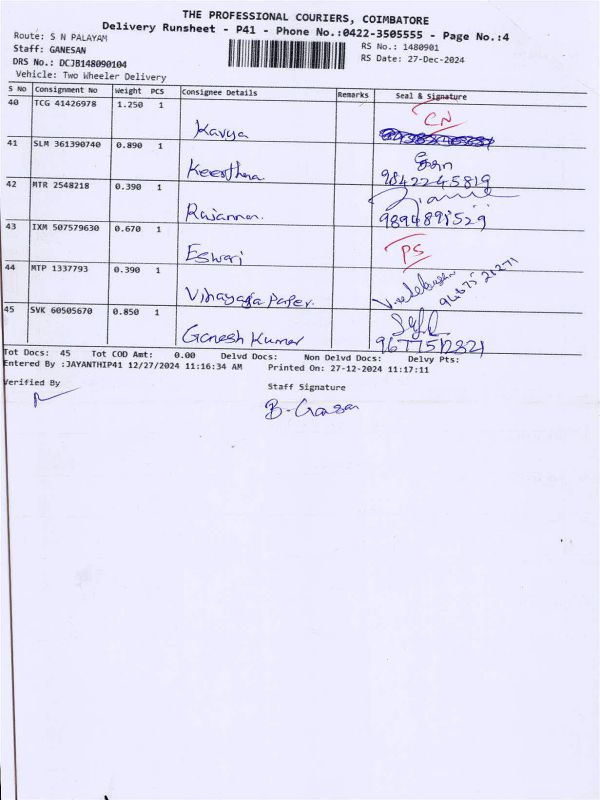 THE PROFESSIONAL COURIERS, COIMBATORE
Delivery Runsheet - P41 - Phone No.:0422-3505555 - Page No.:4
Route: S N PALAYAM
RS No.: 1480901
Staff: GANESAN
RS Date: 27-Dec-2024
DRS No.: DCJB148090104
Vehicle: Two Wheeler Delivery
S No Consignment No Weight PCS Consignee Details Remarks Seal & Signature
40 TCG 41426978 1.250 1 Kavya CN
41 SLM 361390740 0.890 1 Keerthna 9842245819
42 MTR 2548218 0.390 1 Rajamma. 9894891529
43 IXM 507579630 0.670 1 Eswari PS
44 MTP 1337793 0.390 1 Vinayaga Paper.
45 SVK 60505670 0.850 1 Ganesh Kumar 9677512321
Tot Docs: 45 Tot COD Amt: 0.00 Delvd Docs: Non Delvd Docs: Delvy Pts:
Entered By :JAYANTHIP41 12/27/2024 11:16:34 AM Printed On: 27-12-2024 11:17:11
Verified By
Staff Signature